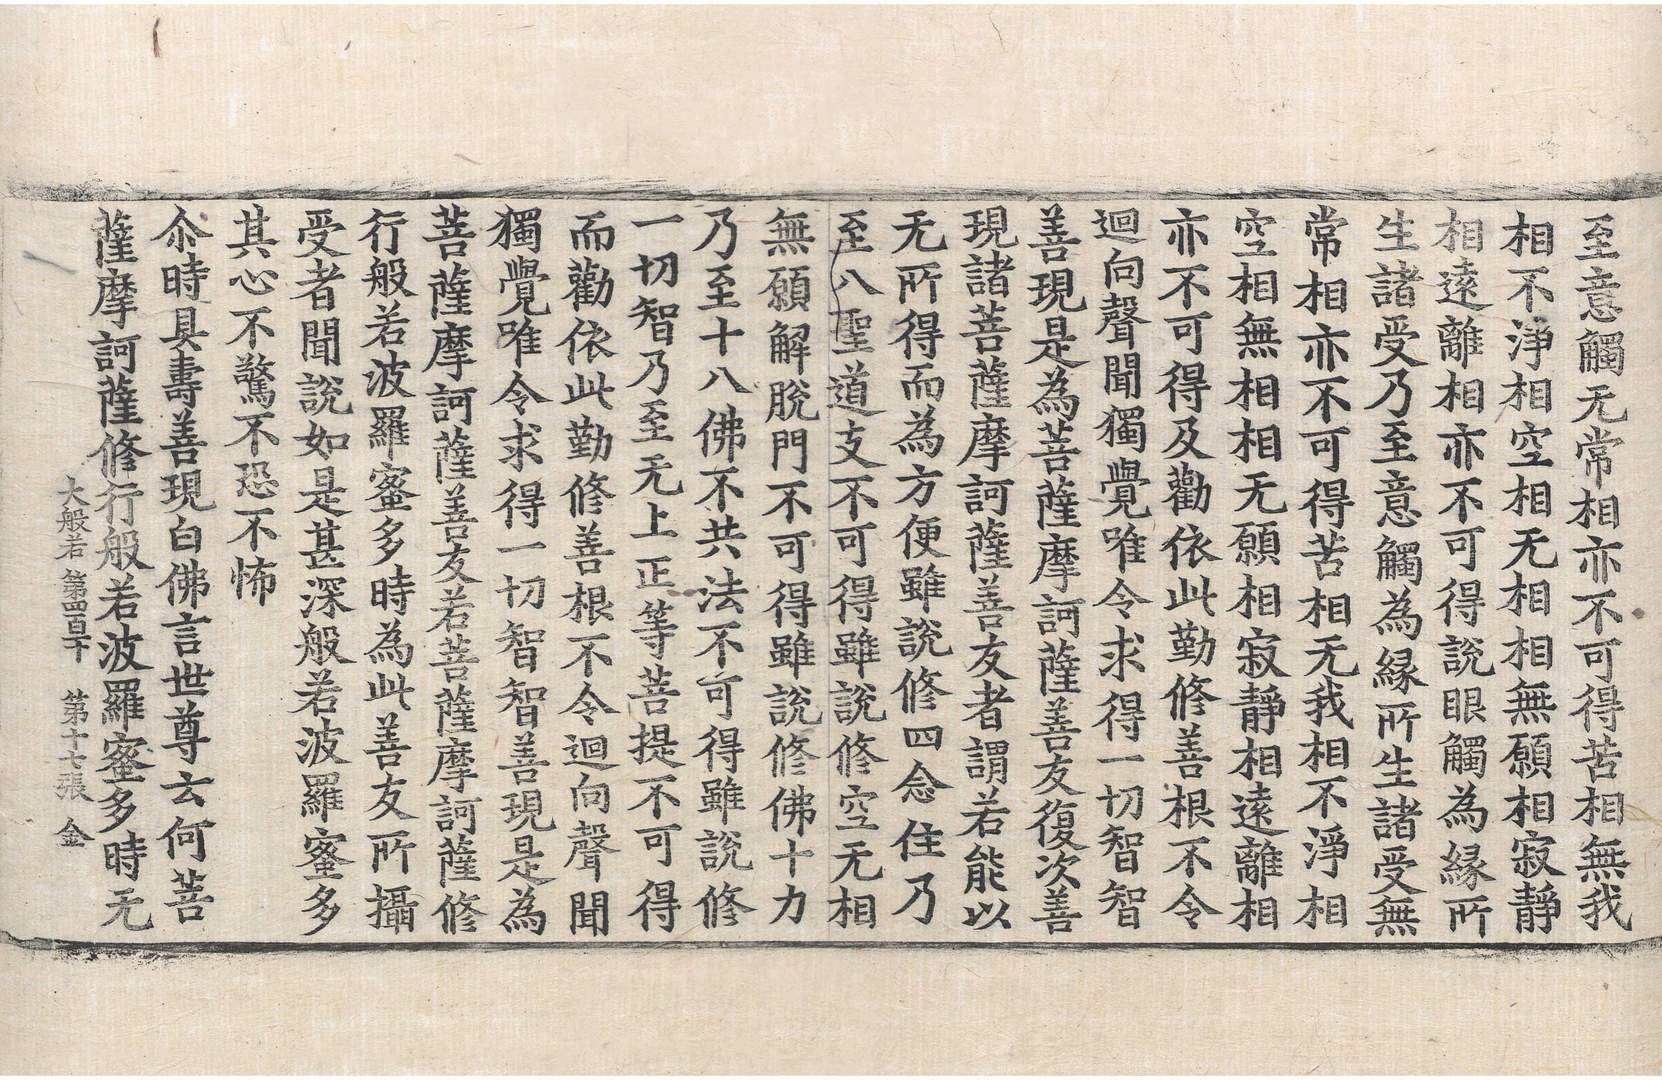 至意觸无常相亦不可得苦相無我
相不淨相空相无相相無願相寂靜
相遠離相亦不可得說眼觸為緣所
生諸受乃至意觸為緣所生諸受無
常相亦不可得苦相无我相不淨相
空相無相相无願相寂靜相遠離相
亦不可得及勸依此勤修善根不令
迴向聲聞獨覺唯令求得一切智智
善現是為菩薩摩訶薩善友復次善
現諸菩薩摩訶薩善友者謂若能以
无所得而為方便雖說修四念住乃
至八聖道支不可得雖說修空无相
無願解脫門不可得雖說修佛十力
乃至十八佛不共法不可得雖說修
一切智乃至无上正等菩提不可得
而勸依此勤修善根不令迴向聲聞
獨覺唯令求得一切智智善現是為
菩薩摩訶薩善友若菩薩摩訶薩修
行般若波羅蜜多時為此善友所攝
受者聞說如是甚深般若波羅蜜多
其心不驚不恐不怖
尒時具壽善現白佛言世尊云何菩
薩摩訶薩修行般若波羅蜜多時无
大般若 第四百十 第十七張 金